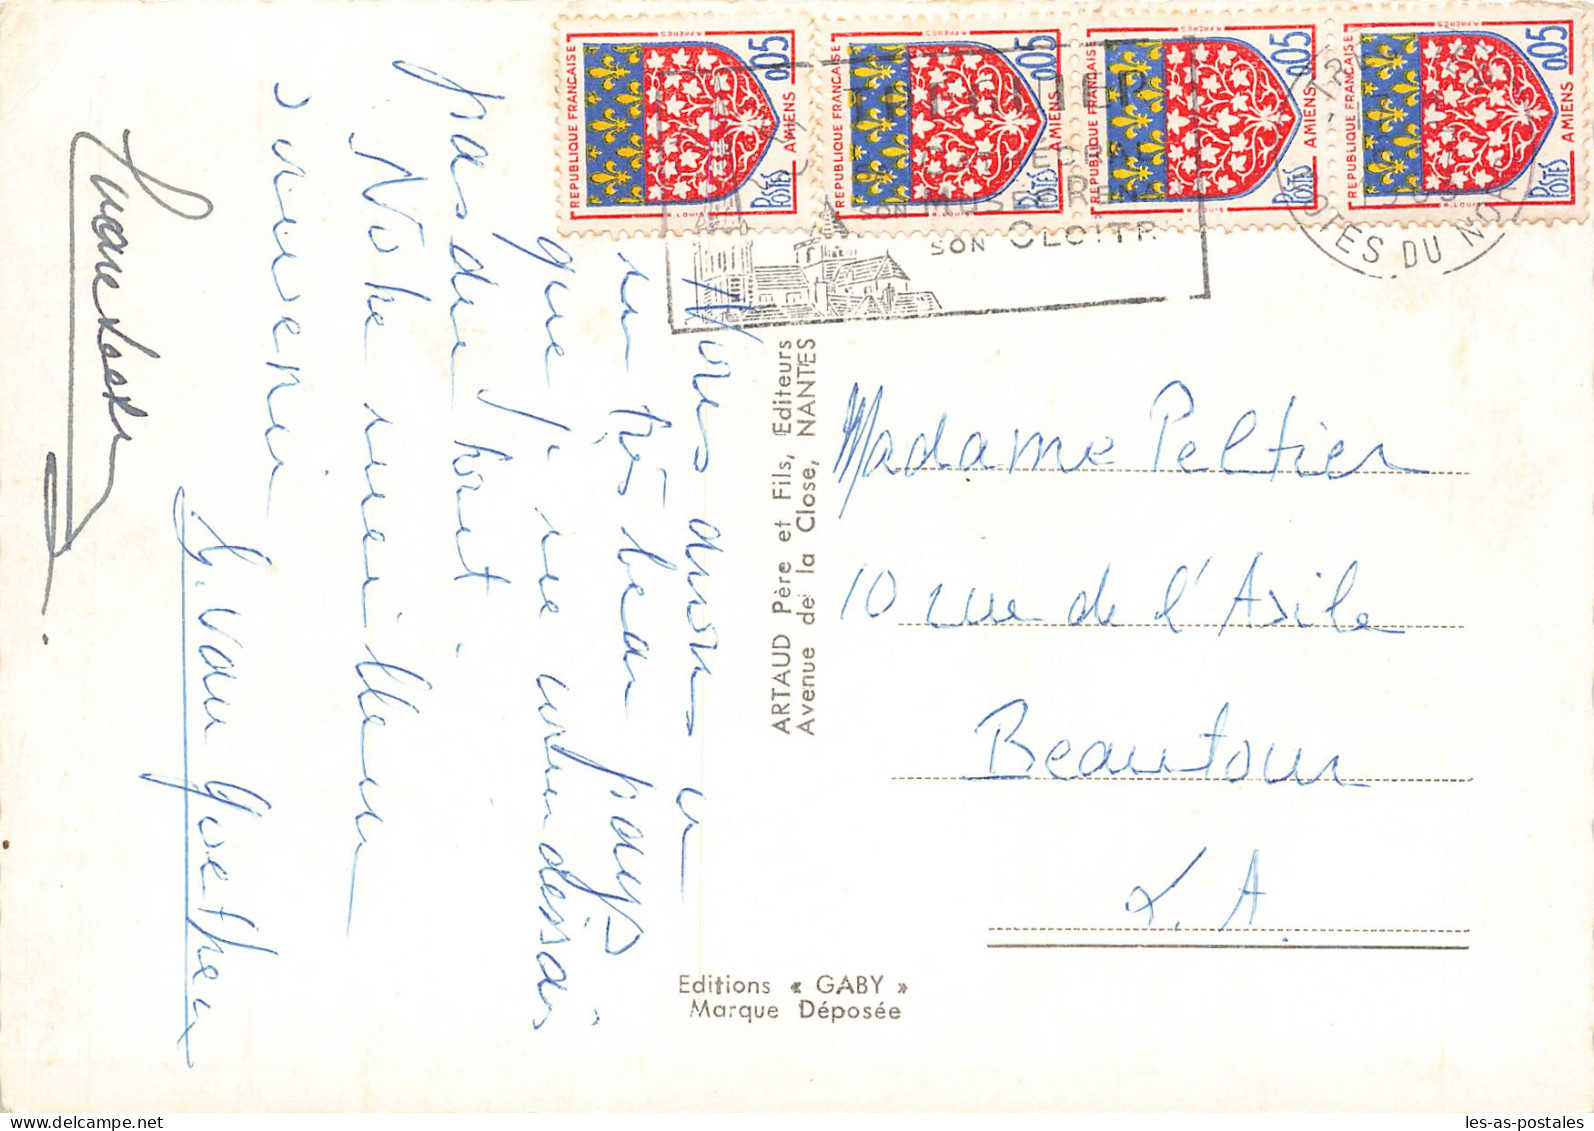 REPUBLIQUE FRANÇAISE 0,05 AMIENS POSTES
REPUBLIQUE FRANÇAISE 0,05 AMIENS POSTES
REPUBLIQUE FRANÇAISE 0,05 AMIENS POSTES
REPUBLIQUE FRANÇAISE 0,05 AMIENS POSTES
SON
SON CLOÎTR
DU NO
Nous avons vu
un très beau pays
que je ne connaissais
pas du tout.
Notre meilleur
souvenir
G. Van
ARTAUD Père et Fils, Editeurs
Avenue de la Close, NANTES
Madame Peltier
10 rue de l'Asile
Beautour
L. A.
Editions « GABY »
Marque Déposée
les-as-postales - delcampe.net